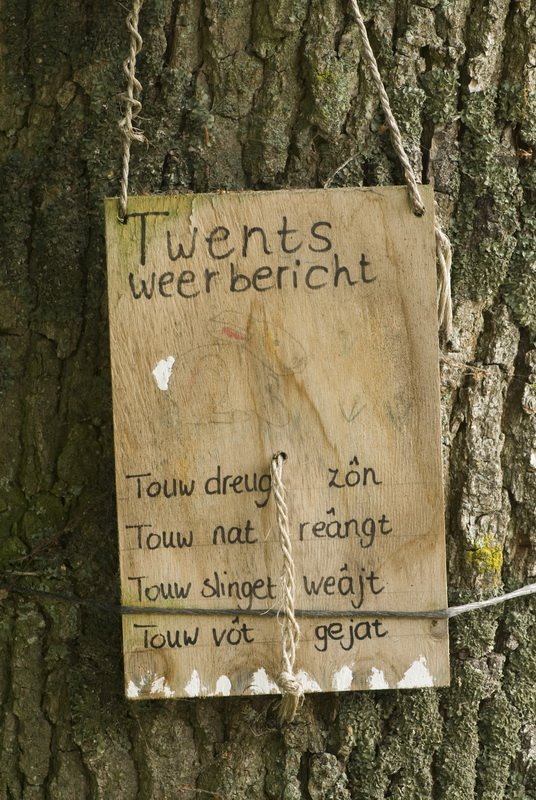 Twents
weerbericht
Touw dreug zôn
Touw nat reângt
Touw slinget weâjt
Touw vôt gejat